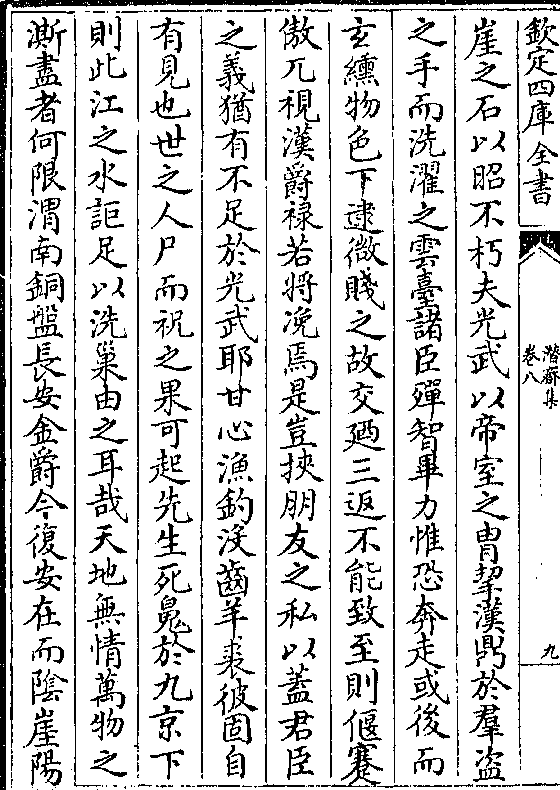 欽定四庫全書
潛齋集
卷八
九
崖之石以昭不朽夫光武以帝室之胄挈漢鼎於羣盗
之手而洗濯之雲臺諸臣殫智畢力惟恐奔走或後而
玄纁物色下逮微賤之故交廼三返不能致至則偃蹇
傲兀視漢爵禄若將浼焉是豈挾朋友之私以蓋君臣
之義猶有不足於光武耶甘心漁釣没齒羊裘彼固自
有見也世之人尸而祝之果可起先生死鬼於九京下
則此江之水詎足以洗巢由之耳哉天地無情萬物之
澌盡者何限渭南銅盤長安金爵今復安在而陰崖陽